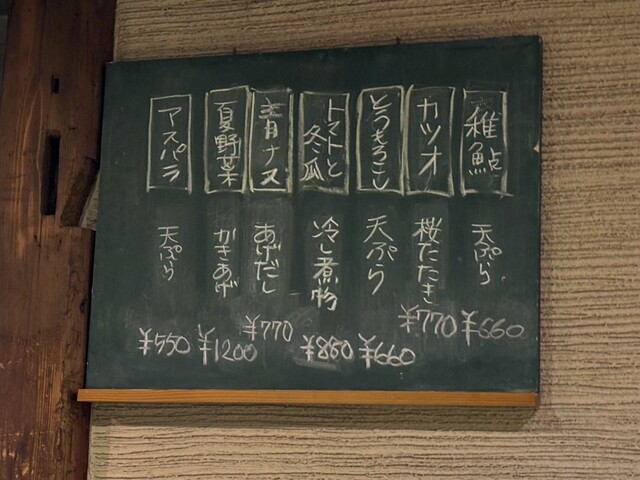 稚鮎 天ぷら ¥660
カツオ 桜たたき ¥770
とうもろこし 天ぷら ¥660
トマトと冬瓜 冷し煮物 ¥880
青ナス あげだし ¥770
夏野菜 かきあげ ¥1200
アスパラ 天ぷら ¥550